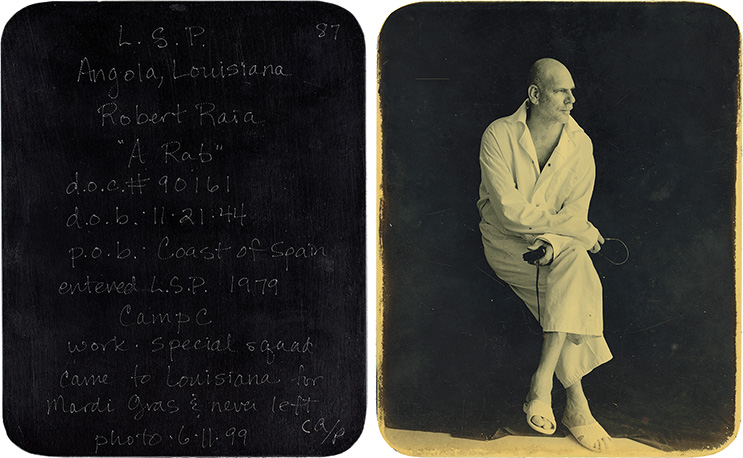 L.S.P. 87
Angola, Louisiana
Robert Raia
"A Rab"
d.o.c.# 90161
d.o.b.· 11·21·44
p.o.b.· Coast of Spain
entered L.S.P. 1979
Camp C
work· special squad
came to Louisiana for
Mardi Gras & never left
photo·6·11·99 ca/p